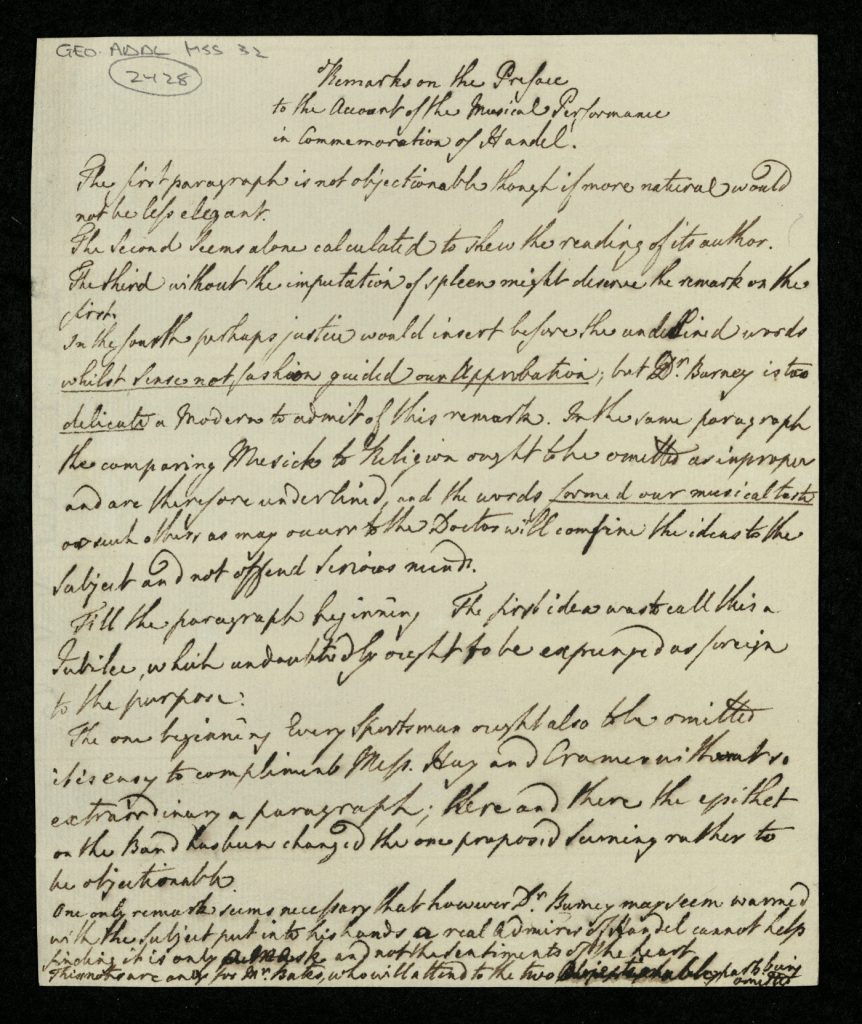 GEO. ADDL MSS 32
2428
Remarks on the Preface
to the Account of the Musical Performance
in Commemoration of Handel.
The first paragraph is not objectionable though if more natural would
not be less elegant.
The Second seems alone calculated to shew the reading of its author.
The third without the imputation of spleen might deserve the remark on the
first.
In the fourth perhaps justice would insert before the underlined words
whilst sense not fashion guided our Approbation; but Dr. Burney is too
delicate a Modern to admit of this remark. In the same paragraph
the comparing Musick to Religion ought to be omitted as improper
and are therefore underlined, and the words formed our musical taste
or such others as may occurr to the Doctor will confine the ideas to the
subject and not offend serious minds.
Till the paragraph beginning The first idea was to call this a
Jubilee, which undoubtedly ought to be expunged as foreign
to the purpose.
The one beginning Every Sportsman ought also to be omitted
it is easy to compliment Mess. Hay and Cramer without so
extraordinary a paragraph; here and there the epithet
on the Band has been changed the one proposed seeming rather to
be objectionable.
One only remark seems necessary that however Dr. Burney may seem warmed
with the subject put into his hands a real Admirer of Handel cannot help
finding it is only a Mask and not the sentiments of the heart
This nots are only for Mr. Bates, who will attend to the two objectionable parts being
omitted